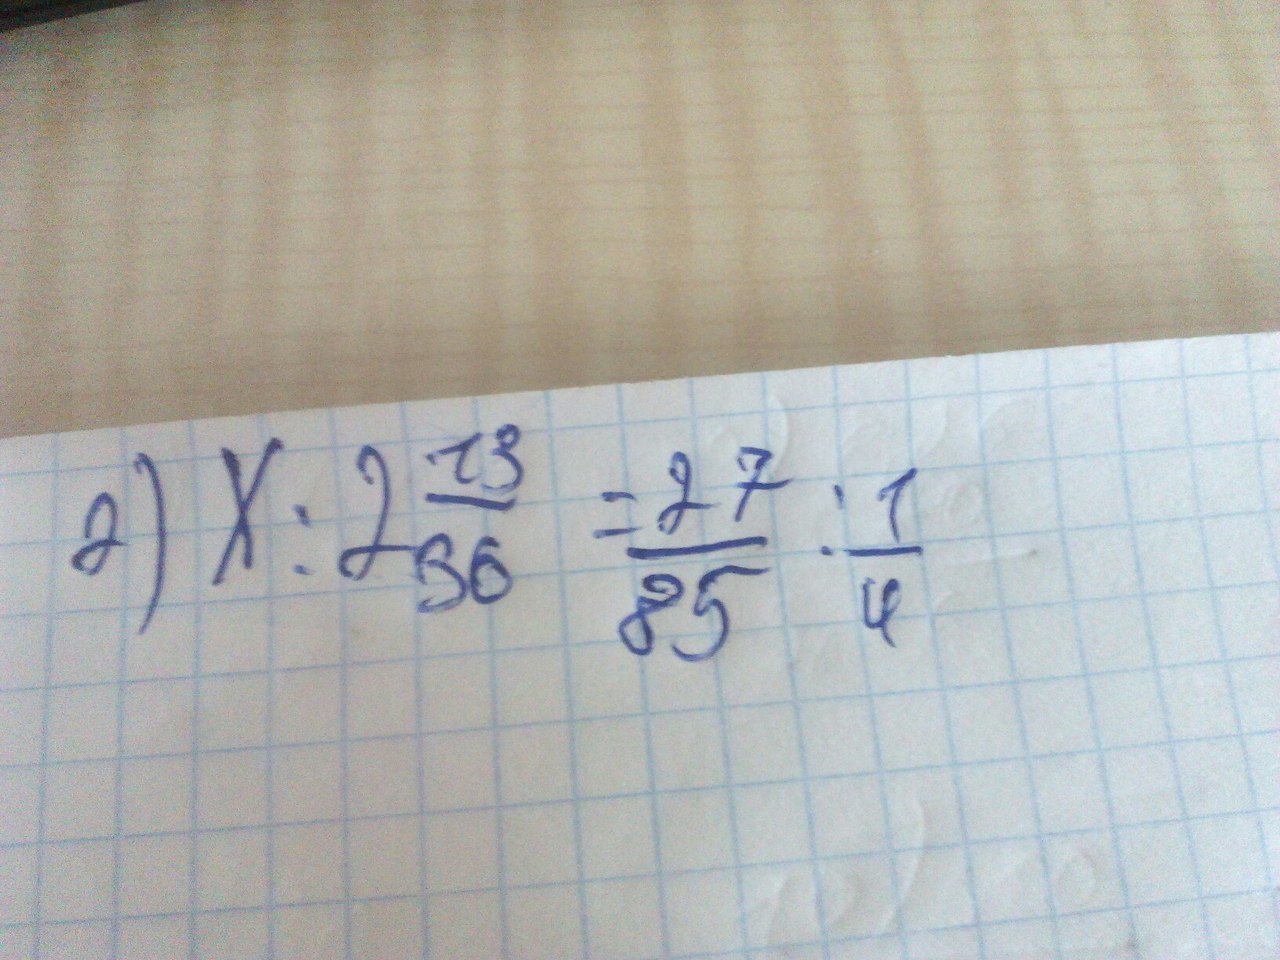 2) X : 2 13/36 = 27/85 : 1/4